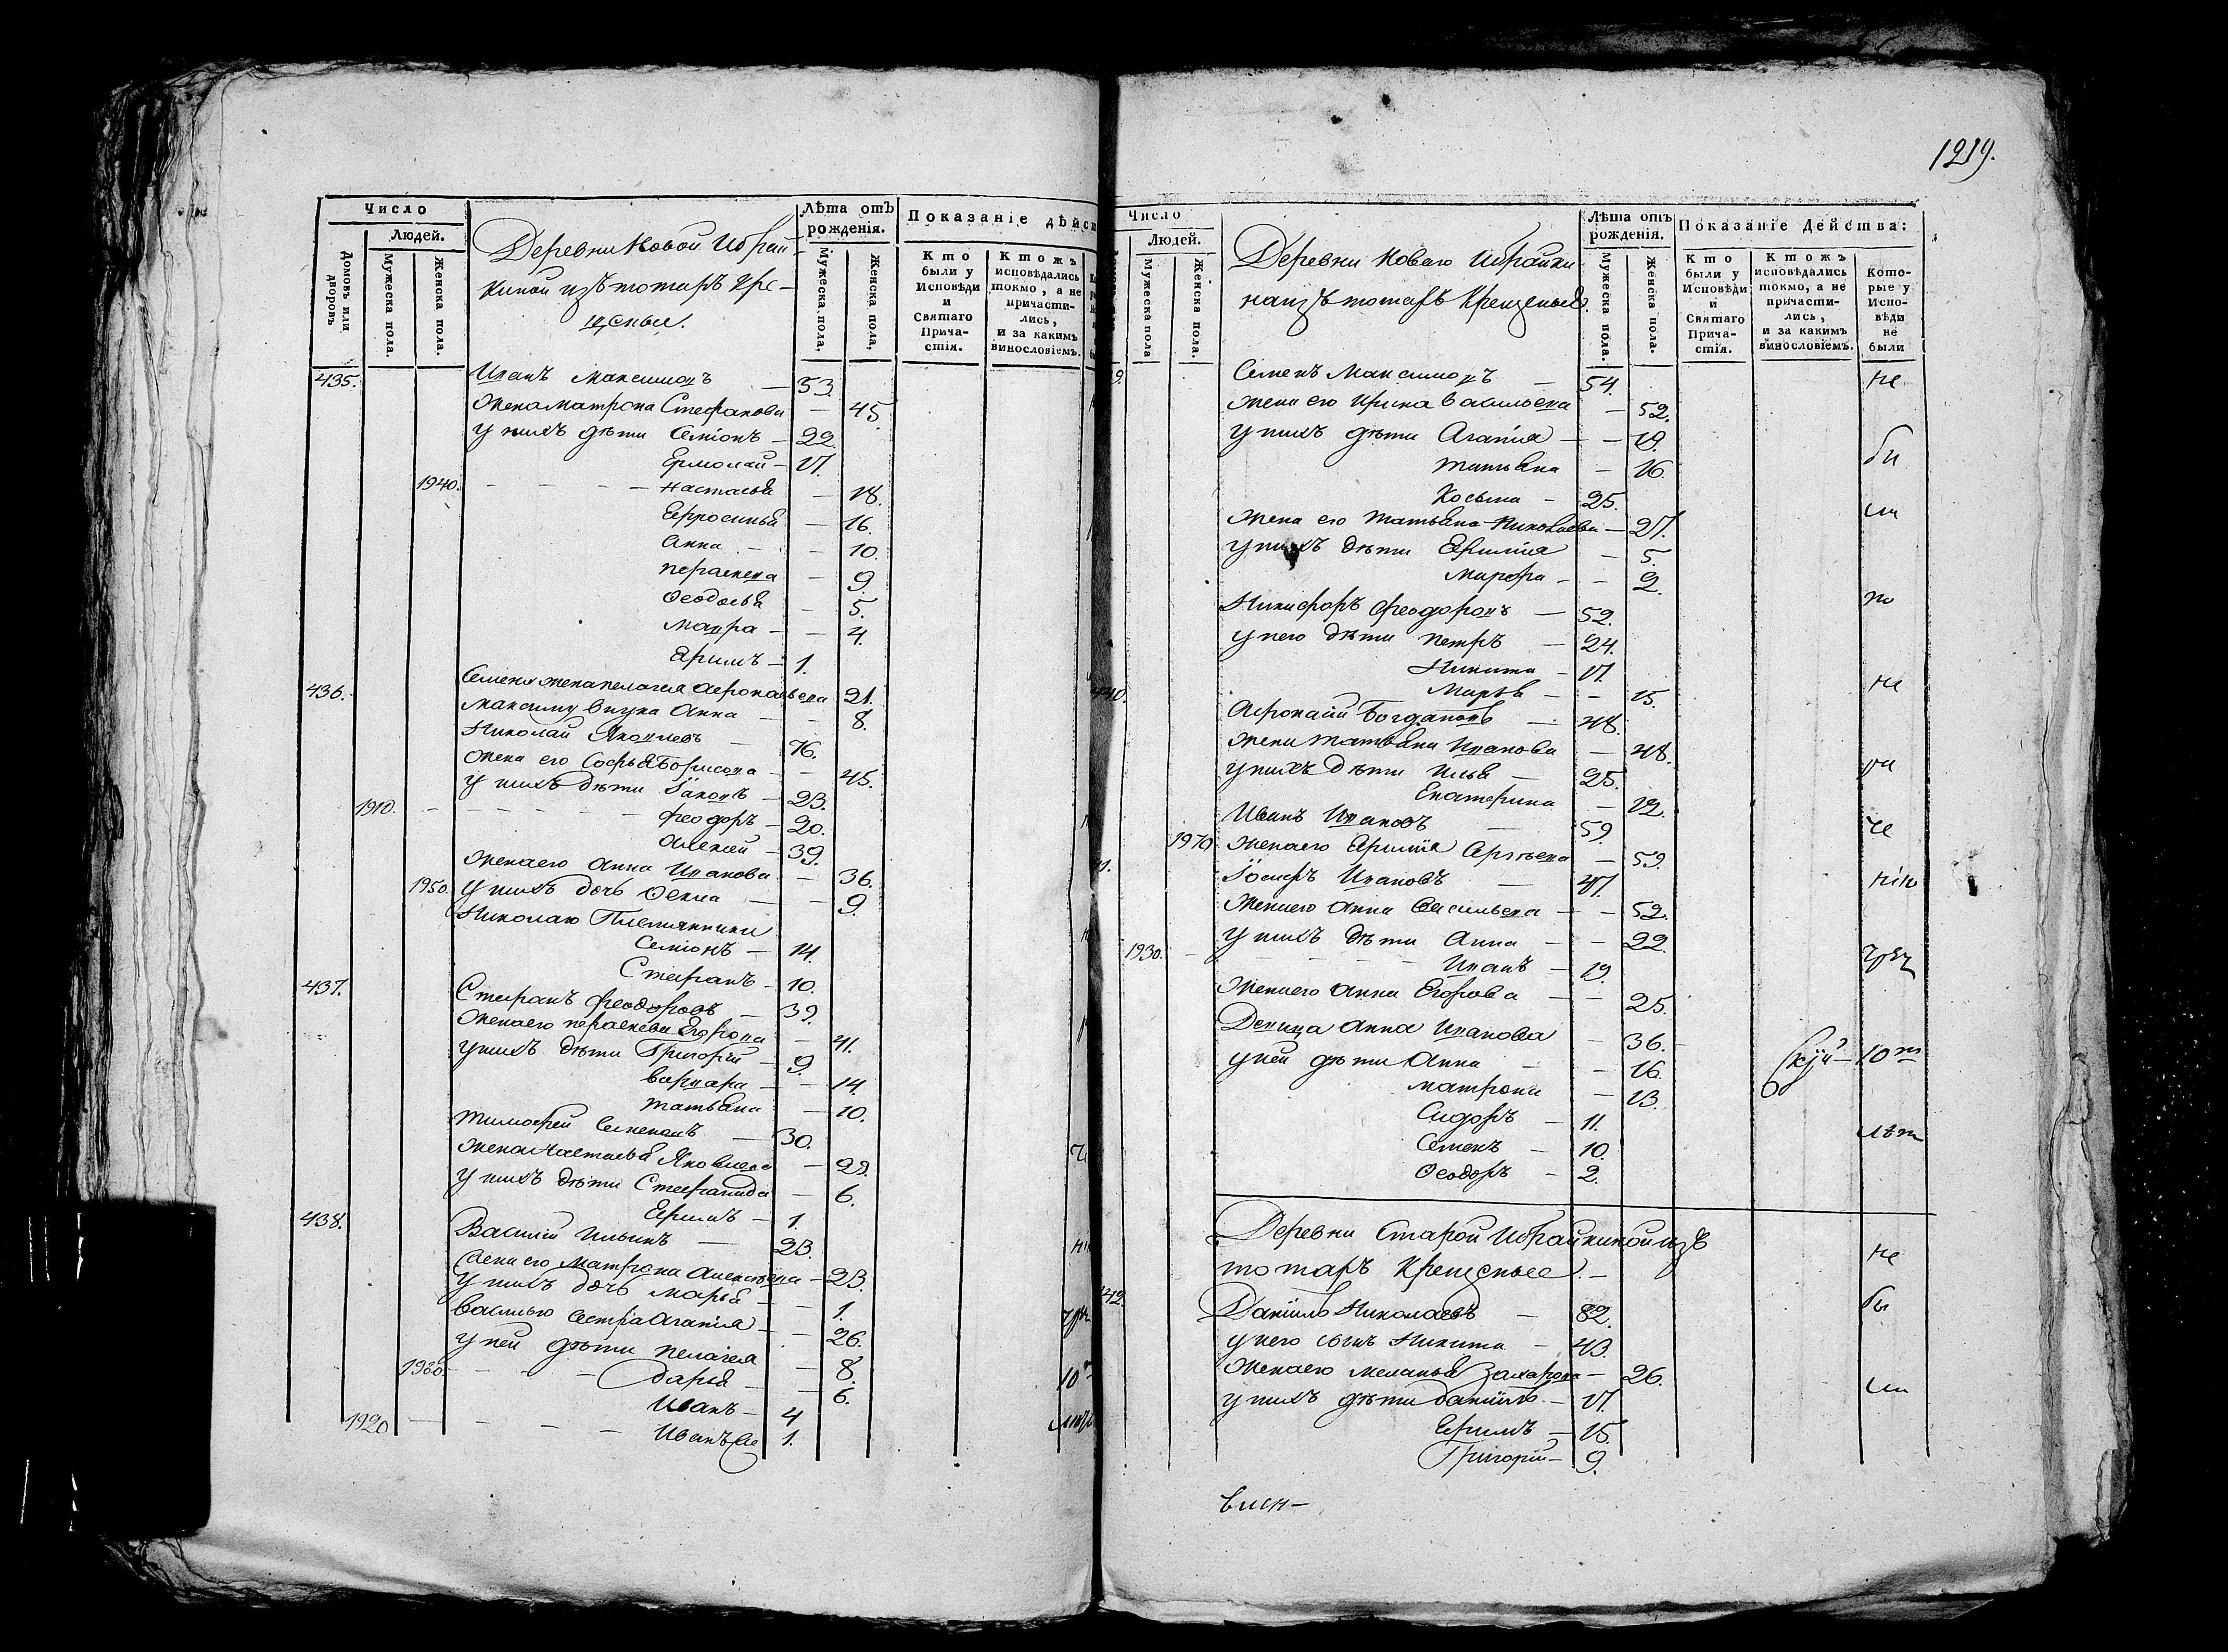 1219.
Число
Людей.
Домовъ или дворовъ
Мужеска пола.
Женска пола.
Деревни Новой Ибрай-
киной изъ татаръ кре-
щеныя.
Лѣта отъ рожденія.
Мужеска пола,
Женска пола,
Показаніе дѣйст
Кто были у Исповѣди и Святаго Прича-стія.
Ктожъ исповѣдались токмо, а не причасти-лись, и за какимъ винословіемъ.
435. Иванъ Максимовъ — 53.
Жена Матрона Стефанова — 45.
у нихъ дѣти Семіонъ — 22.
Ермолай — 17.
1940. Настасья — 18.
Ефросинья — 16.
Анна — 10.
Параскева — 9.
Ѳеодосья — 5.
Мавра — 4.
Ефимъ — 1.
Семена жена Пелагея Афонасьева 21.
436. Максиму внука Анна — 8.
Николай Яковлевъ — 76.
Жена его Софья Борисова — 45.
у нихъ дѣти Іаковъ — 23.
1910. Феодоръ — 20.
Алексей — 39.
Жена его Анна Иванова — 36.
1950. у нихъ дочь Ѳекла — 9.
Николаю Племянники
Семіонъ — 14.
Стефанъ — 10.
437. Стефанъ Феодоровъ — 39.
Жена его Параскева Егорова — 41.
у нихъ дѣти Григорій — 9.
Варвара — 14.
Татьяна — 10.
Тимофей Семеновъ — 30.
Жена Настасья Яковлева — 29.
у нихъ дѣти Стефанида — 6.
Ефимъ — 1.
438. Василій Ильинъ — 23.
Жена его Матрона Алексѣева — 23.
у нихъ дочь Марья — 1.
Василью сестра Агапія — 26.
у ней дѣти Пелагея — 8.
1960. Дарья — 6.
Иванъ — 4
1920 Иванъ же 1.
Число
Людей.
Мужеска пола
Женска пола.
Деревни Новаго Ибрайки-
на изъ татаръ Крещеные.
Лѣта отъ рожденія.
Мужеска пола.
Женска пола.
Показаніе Действа:
Кто были у Исповѣди и Святаго Прича-стія.
Ктожъ исповѣдались токмо, а не причасти-лись, и за какимъ винословіемъ.
Кото-рые у Испо-вѣди не были
Семенъ Максимовъ — 54. не
Жена его Ирина Васильева — 52.
у нихъ дѣти Агапія — 19. бы
Татьяна — 16.
Косьма — 25.
Жена его Татьяна Николаева — 27. ли
у нихъ дѣти Ефимія — 5.
Марфа — 2.
Никифоръ Феодоровъ — 52. по
у него дѣти Петръ — 24.
Никита — 17.
440. Марья — 15. не
Афонасій Богдановъ — 48.
Жена Татьяна Иванова — 48.
у нихъ дѣти Илья — 25. ра
Екатерина — 12.
Иванъ Ивановъ — 59. че
1970 Жена его Ефимія Сергѣева — 59.
Іосифъ Ивановъ — 47. нію
Жена его Анна Васильева — 52.
у нихъ дѣти Анна — 22.
1930. Иванъ — 19. чрез
Жена его Анна Егорова — 25.
Девица Анна Иванова — 36.
у ней дѣти Анна — 16. 10т
Матрона — 13.
Сидоръ — 11.
Семенъ — 10. лѣт
Ѳеодоръ — 2.
Деревни Старой Ибрайкиной изъ
татаръ Крещеные. не
Даніилъ Николаевъ — 82. бы
у него сынъ Никита — 43.
Жена его Меланья Захарова — 26.
у нихъ дѣти Даніилъ — 17. ли
Ефимъ — 15.
Григорій — 9.